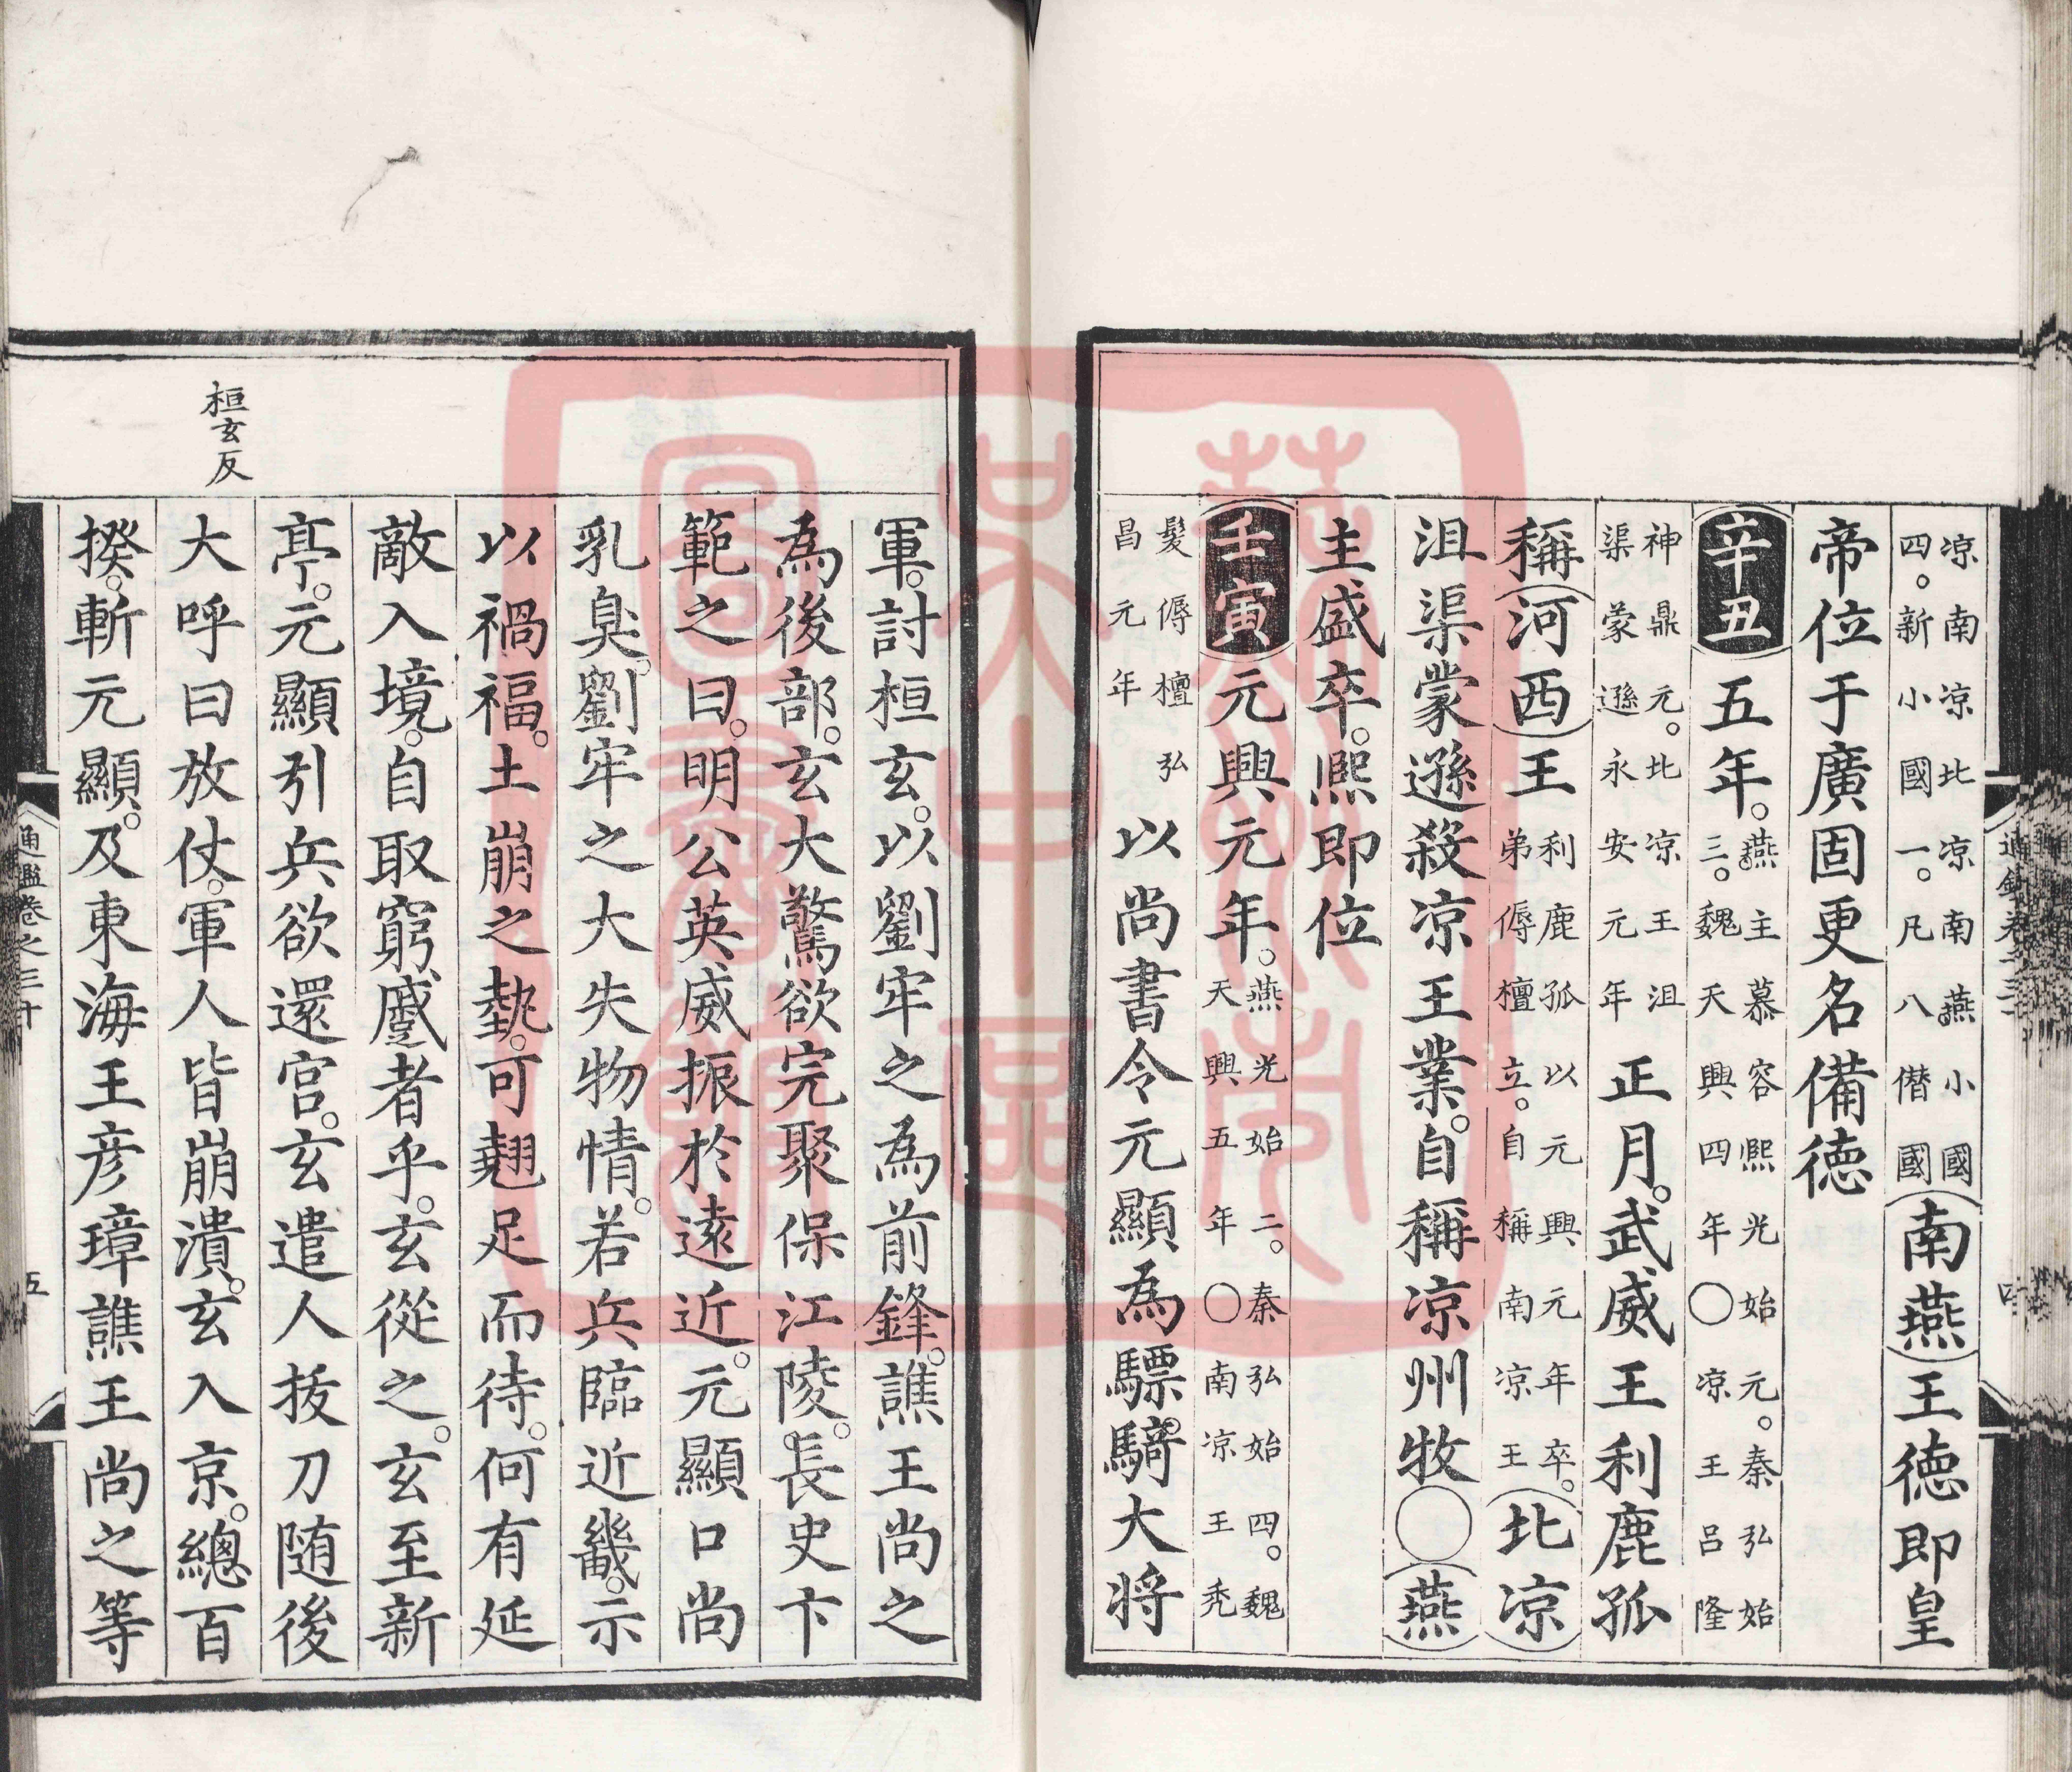 凉南凉北凉南燕小國
四。新小國一。凡八僣國
南燕王徳即皇
帝位于廣固更名備徳
辛丑五年。
燕主慕容熙光始元。秦弘始
三。魏天興四年○凉王呂隆
神鼎元。北凉王沮
渠蒙遜永安元年
正月。武威王利鹿孤
稱河西王
利鹿孤以元興元年卒。
弟傉檀立。自稱南凉王
北凉
沮渠蒙遜殺凉王業。自稱凉州牧○燕
主盛卒。熙即位
壬寅元興元年。
燕光始二。秦弘始四。魏
天興五年○南凉王禿
髮傉檀弘
昌元年
以尚書令元顯為驃騎大将
軍。討桓玄。以劉牢之為前鋒。譙王尚之
為後部。玄大驚欲完聚保江陵。長史卞
範之曰。明公英威振於遠近。元顯口尚
乳臭。劉牢之大失物情。若兵臨近畿。示
以禍福。土崩之勢。可翹足而待。何有延
敵入境。自取窮蹙者乎。玄從之。玄至新
亭。元顯引兵欲還宮。玄遣人拔刀随後
桓玄反
大呼曰放仗。軍人皆崩潰。玄入京。總百
揆。斬元顯。及東海王彦璋譙王尚之等
通鑑卷之三十
五